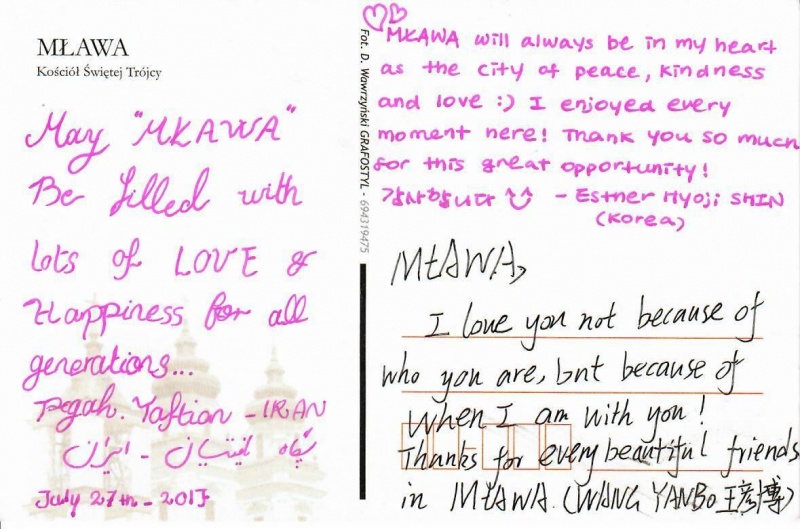 MŁAWA
Kościół Świętej Trójcy
May "MŁAWA"
Be filled with
lots of LOVE &
Happiness for all
generations...
Pegah. Yaftian - IRAN
پگاه یافتیان - ایران
July 27th - 2017
Fot. D. Wawrzyński GRAFOSTYL - 694319475
MŁAWA will always be in my heart
as the city of peace, kindness
and love :) I enjoyed every
moment here! Thank you so much
for this great opportunity!
감사합니다 - Esther Hyoji SHIN
(Korea)
MŁAWA,
I love you not because of
who you are, but because of
when I am with you!
Thanks for every beautiful friends
in MŁAWA. (WANG YANBO 王彦博)